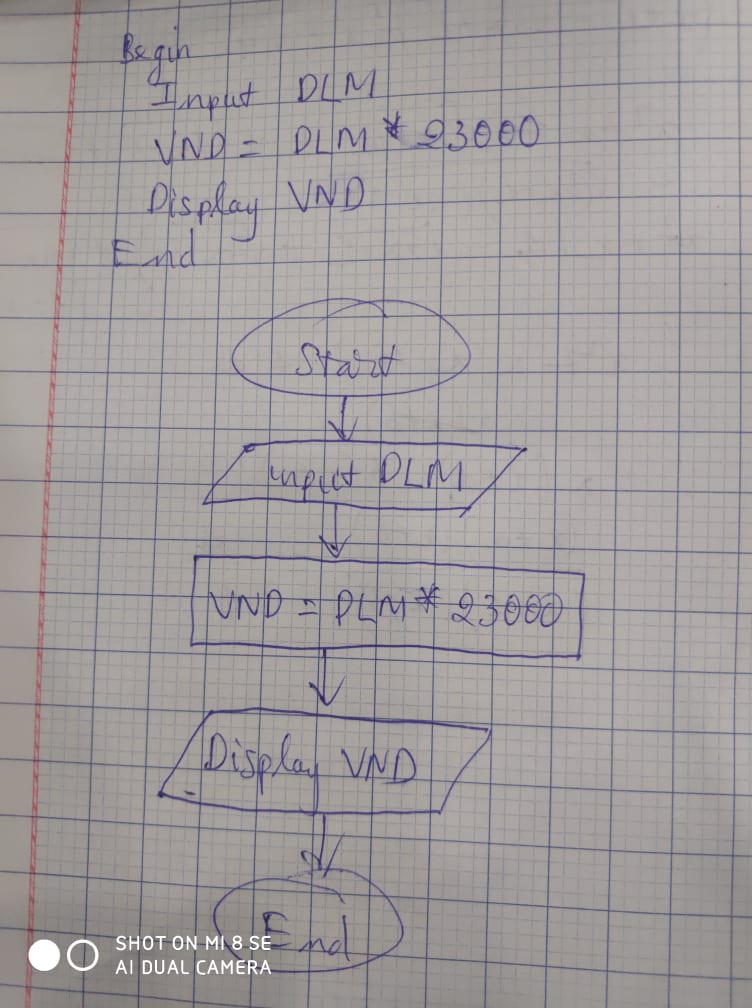 Begin
Input DLM
VND = DLM * 23000
Display VND
End
Start
input DLM
VND = DLM * 23000
Display VND
End
SHOT ON MI 8 SE
AI DUAL CAMERA